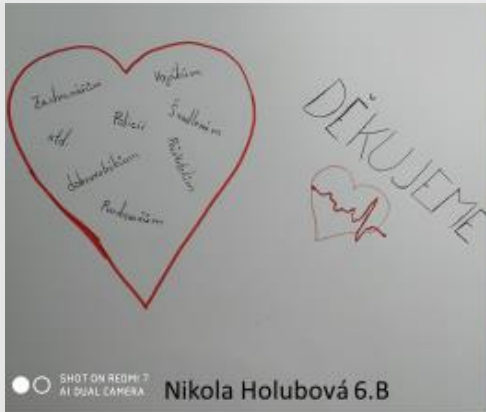 Záchranářům
Vojákům
Policii
Švadlenám
atd.
dobrovolníkům
DĚKUJEME
SHOT ON REDMI 7
AI DUAL CAMERA
Nikola Holubová 6.B